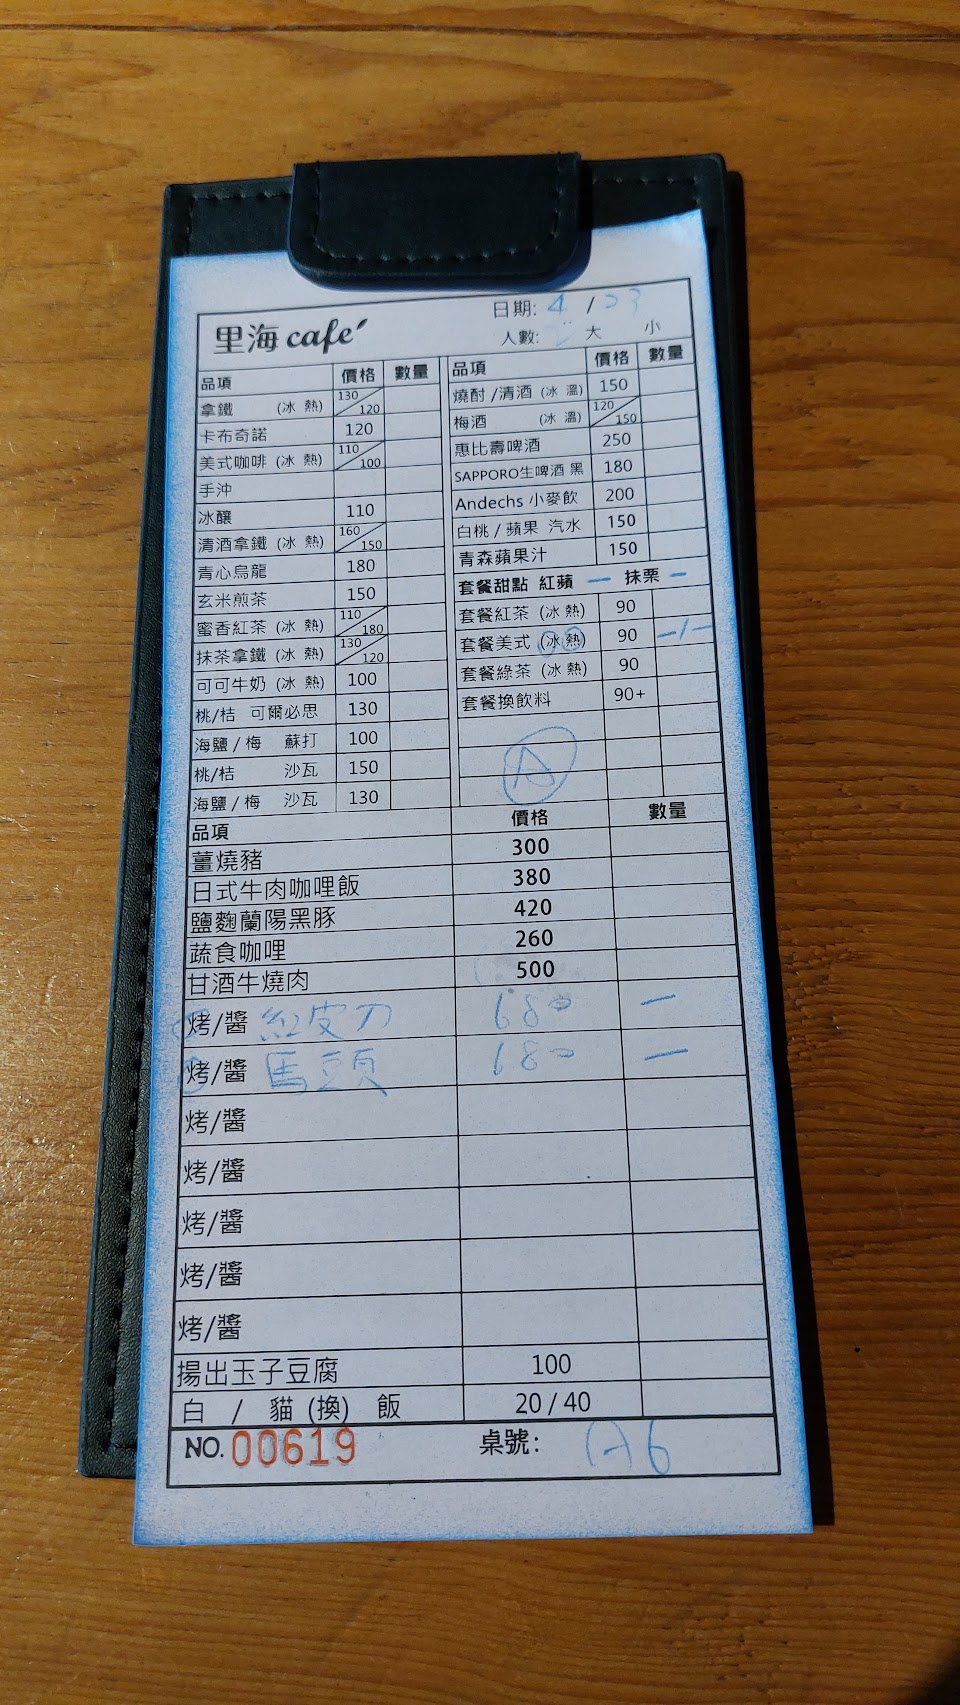 里海 café
日期: 4 / 23
人數: 大 小
品項 價格 數量
拿鐵 (冰 熱) 130/120
卡布奇諾 120
美式咖啡 (冰 熱) 110/100
手沖
冰釀 110
清酒拿鐵 (冰 熱) 160/150
青心烏龍 180
玄米煎茶 150
蜜香紅茶 (冰 熱) 110/180
抹茶拿鐵 (冰 熱) 130/120
可可牛奶 (冰 熱) 100
桃/桔 可爾必思 130
海鹽 / 梅 蘇打 100
桃/桔 沙瓦 150
海鹽 / 梅 沙瓦 130
品項 價格 數量
燒酎 /清酒 (冰 溫) 150
梅酒 (冰 溫) 120/150
惠比壽啤酒 250
SAPPORO生啤酒 黑 180
Andechs 小麥飲 200
白桃 / 蘋果 汽水 150
青森蘋果汁 150
套餐甜點 紅蘋 一 抹栗 一
套餐紅茶 (冰 熱) 90
套餐美式 (冰 熱) 90 一/一
套餐綠茶 (冰 熱) 90
套餐換飲料 90+
A
品項 價格 數量
薑燒豬 300
日式牛肉咖哩飯 380
鹽麴蘭陽黑豚 420
蔬食咖哩 260
甘酒牛燒肉 500
烤/醬 紅皮刀 680 一
烤/醬 馬頭 680 一
烤/醬
烤/醬
烤/醬
烤/醬
烤/醬
揚出玉子豆腐 100
白 / 貓 (換) 飯 20 / 40
NO. 00619 桌號: A6